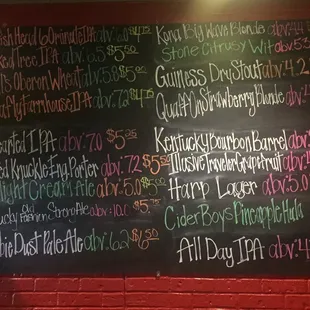 ish Head 60 minute IPA abv 6.0 $4.75
ed Tree IPA 5.5 $5.50
's Oberon Wheat 5.8 $5.50
a Fly Farmhouse IPA abv: 7.2 $4.75
earted IPA abv: 7.0 $5.25
ed Knuckle Eng. Porter abv: 7.2 $5.50
light Cream Ale abv: 5.0 $5
ucky Old Fashion Strong Ale abv: 10.0 $5.75
bie Dust Pale Ale abv: 6.2 $6.50
Kona Big Wave Blonde abv: 4.
Stone Citrusy Wit abv: 5.3
Guinness Dry Stout abv: 4.2
Quaff On Strawberry Blonde abv:
Kentucky Bourbon Barrel abv:
Illusive Traveler Grapefruit abv:
Harp Lager abv: 5.0
Cider Boys Pineapple Hula
All Day IPA abv: 4.